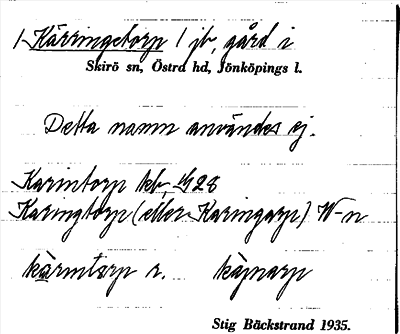 / Kärringetorp / jb, gård i
Skirö sn, Östra hd, Jönköpings l.
Detta namn användes ej.
Karintorp kb 1/1 28
Karingtorp (eller Karingarp) W-n
kärmtorp r. kājnarp
Stig Bäckstrand 1935.